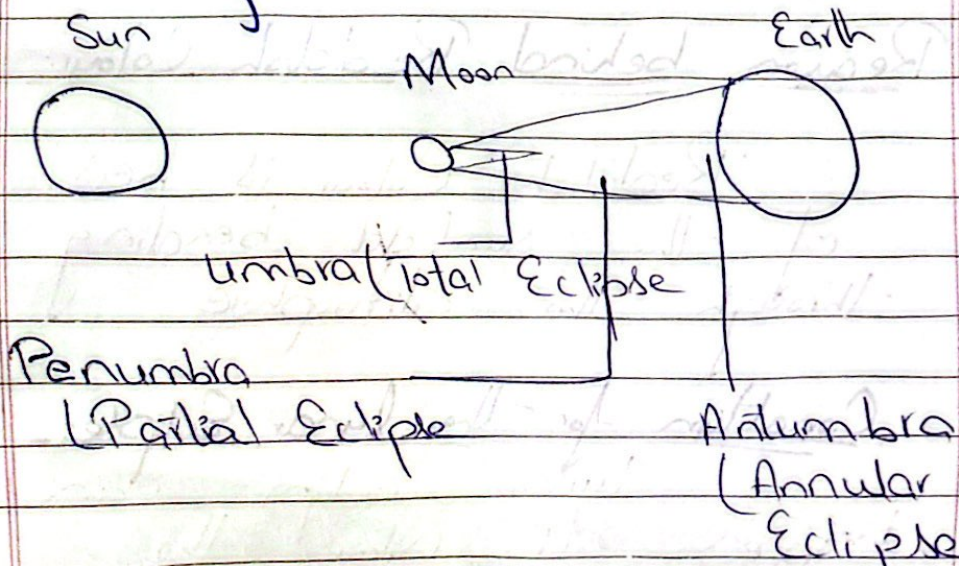 Sun
Moon
Earth
Umbra (Total Eclipse
Penumbra
(Partial Eclipse
Antumbra
(Annular
Eclipse